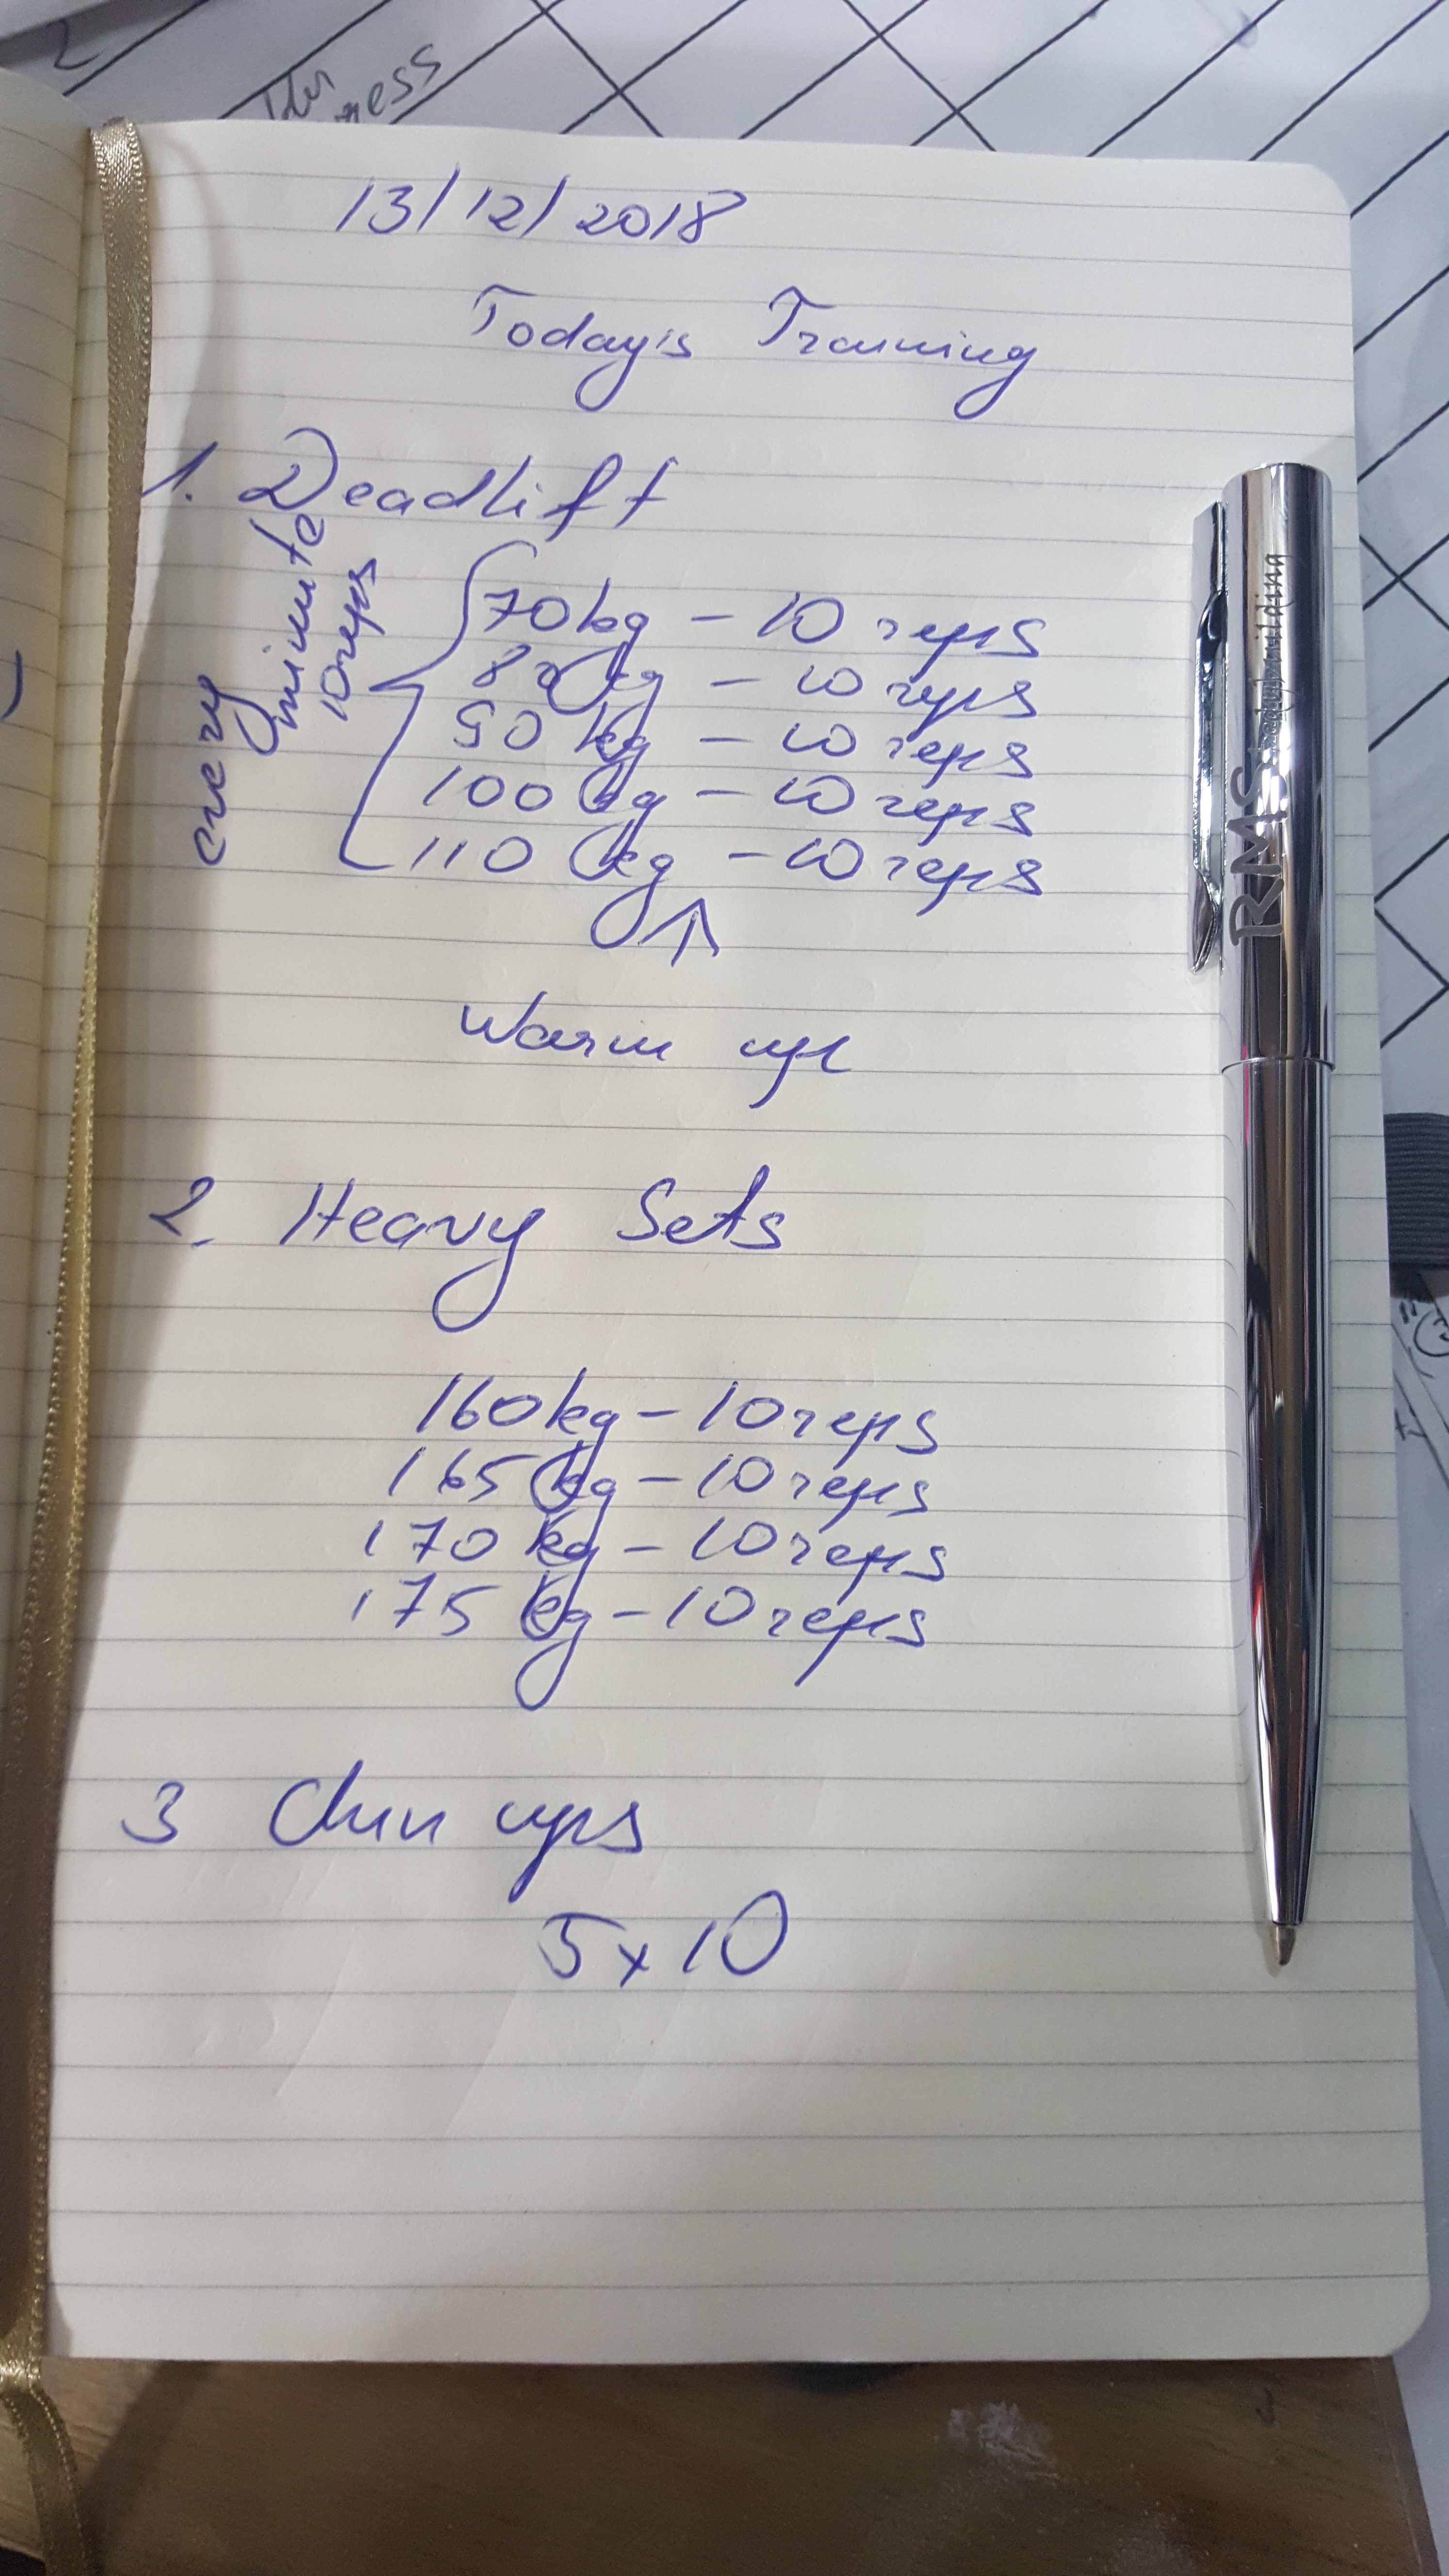 13/12/2018
Today's Training
1. Deadlift
every
minute
10 reps
70 kg - 10 reps
80 kg - 10 reps
90 kg - 10 reps
100 kg - 10 reps
110 kg - 10 reps
Warm up
2. Heavy Sets
160 kg - 10 reps
165 kg - 10 reps
170 kg - 10 reps
175 kg - 10 reps
3 Chin ups
5 x 10
RMS